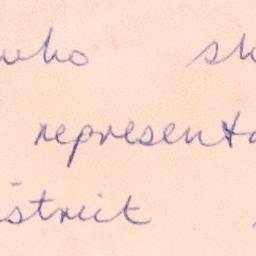 who sh
representa
istrict